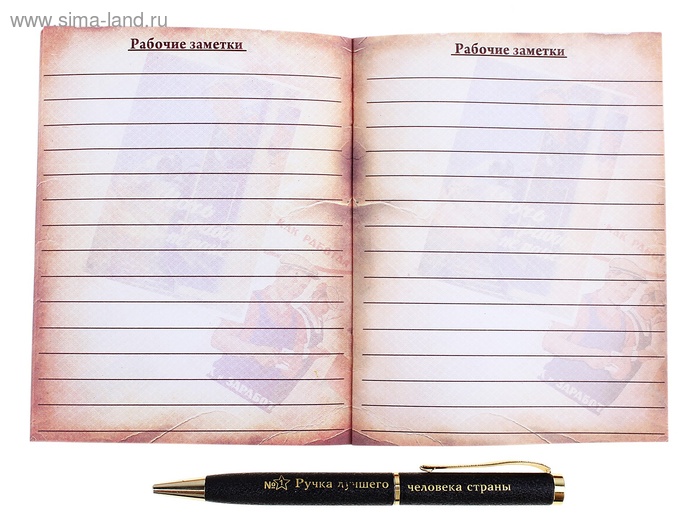 © www.sima-land.ru
Рабочие заметки
Рабочие заметки
КАК РАБОТАЛ
№1 Ручка лучшего человека страны